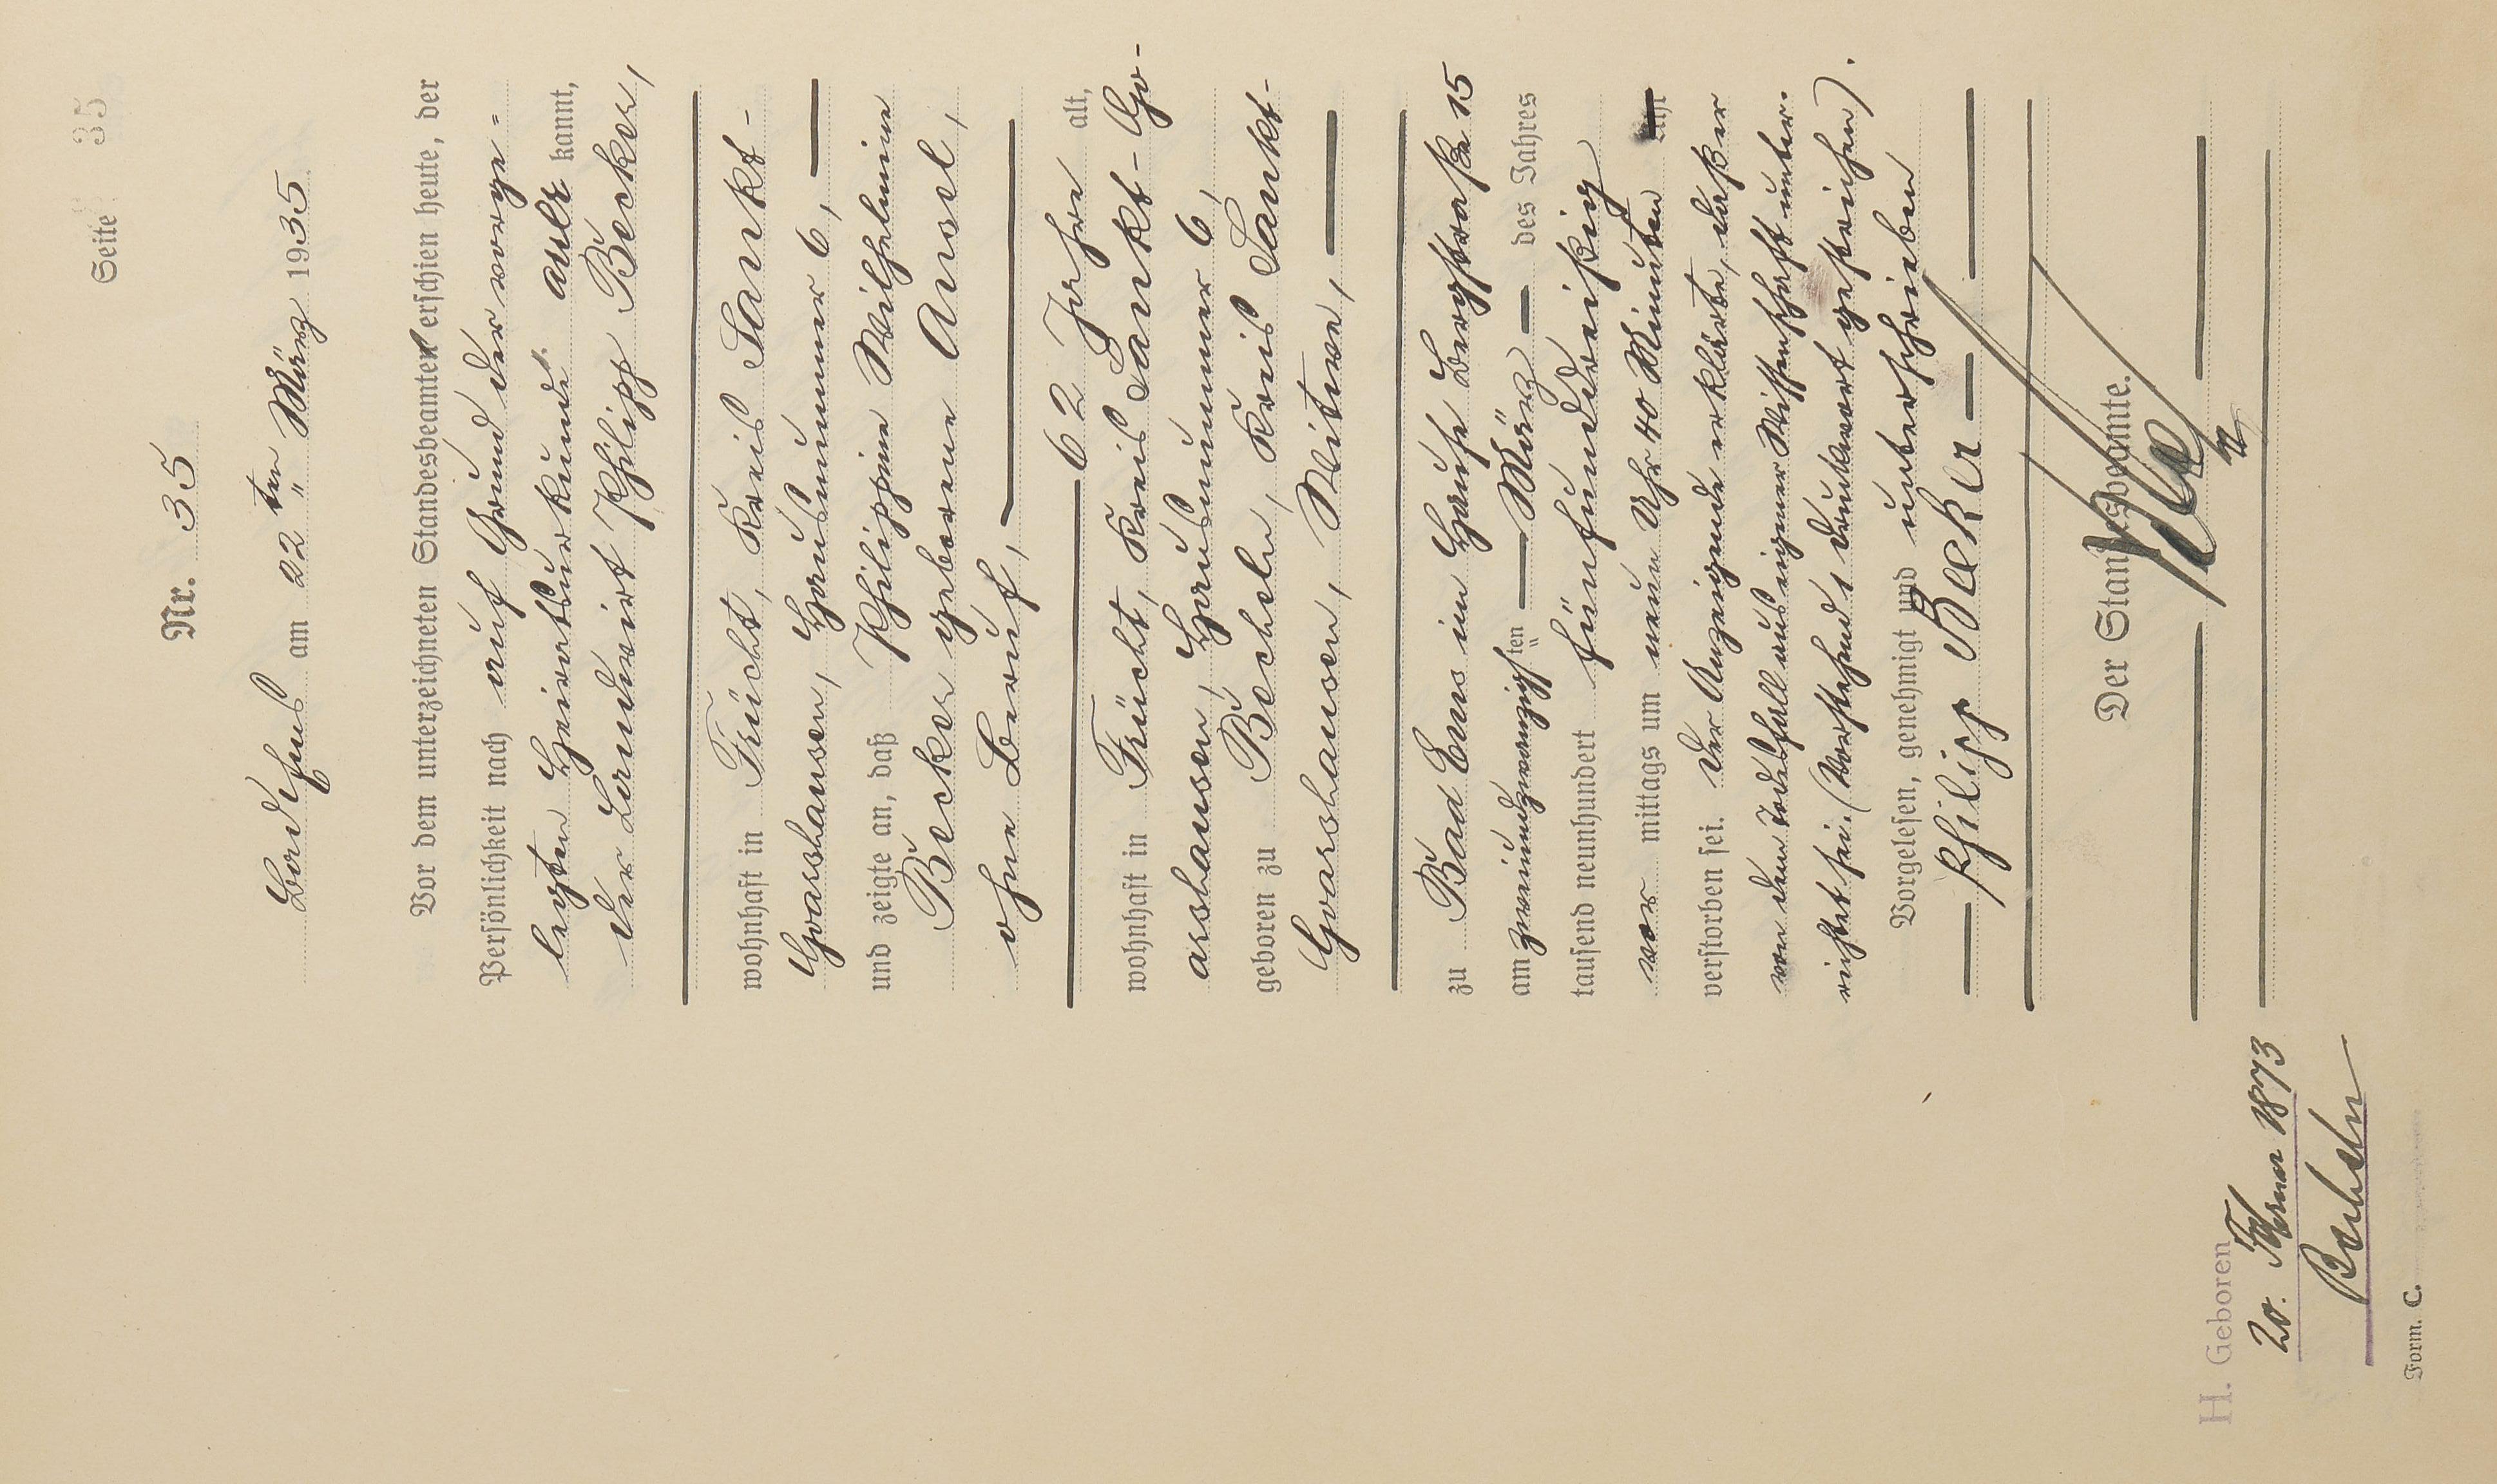 Seite 35
Nr. 35
Bad Ems am 22ten März 1935
Vor dem unterzeichneten Standesbeamten erschien heute, der
Persönlichkeit nach auf Grund der vorge=
legten Heiratsurkunde aner kannt,
der Landwirt Philipp Becker,
wohnhaft in Frücht, Kreis Sankt-
Goarshausen, Hausnummer 6,
und zeigte an, daß Philippine Wilhelmine
Becker geborene Ansel,
ohne Beruf,
62 Jahre alt,
wohnhaft in Frücht, Kreis Sankt-Go-
arshausen, Hausnummer 6,
geboren zu Becheln, Kreis Sankt-
Goarshausen, Witwe,
zu Bad Ems im Hause Bergstraße 15
am zweiundzwanzigsten März des Jahres
tausend neunhundert fünfunddreißig
vor mittags um neun Uhr 40 Minuten Uhr
verstorben sei. Der Anzeigende erklärte, daß er
von dem Todesfall aus eigener Wissenschaft unter-
richtet sei. (Vorstehend 1 Druckwort gestrichen).
Vorgelesen, genehmigt und unterschrieben
Philipp Becker
Der Standesbeamte.
H. Geboren
20. 1873
Becheln
Form. C.